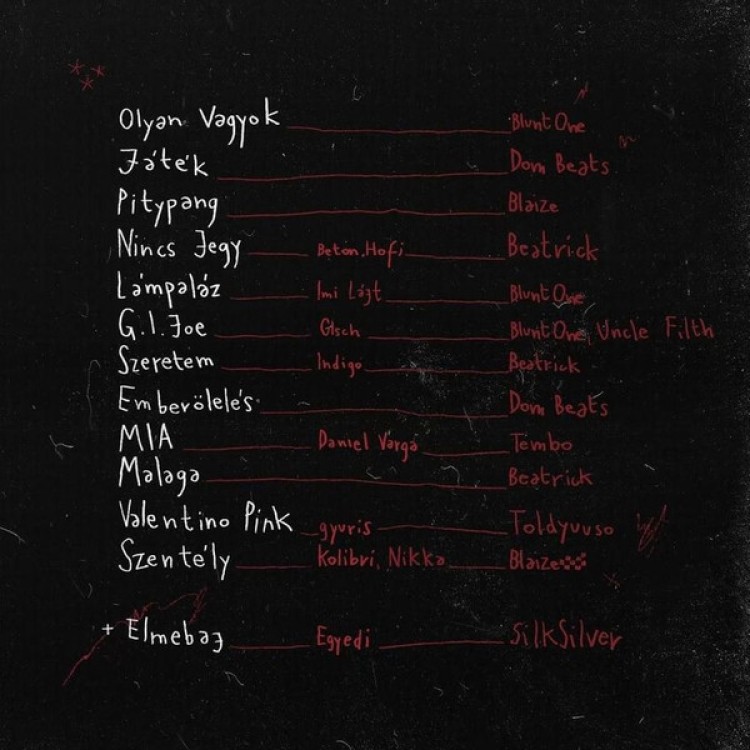 Olyan Vagyok Blunt One
Játék Dom Beats
Pitypang Blaize
Nincs Jegy Beton.Hofi Beatrick
Lámpaláz Imi Lájt Blunt One
G.I.Joe Glsch Blunt One, Uncle Filth
Szeretem Indigo Beatrick
Emberölelés Dom Beats
MIA Daniel Varga Tembo
Malaga Beatrick
Valentino Pink gyuris Toldyuuso
Szentély Kolibri, Nikka Blaize
+ Elmebaj Egyedi SilkSilver